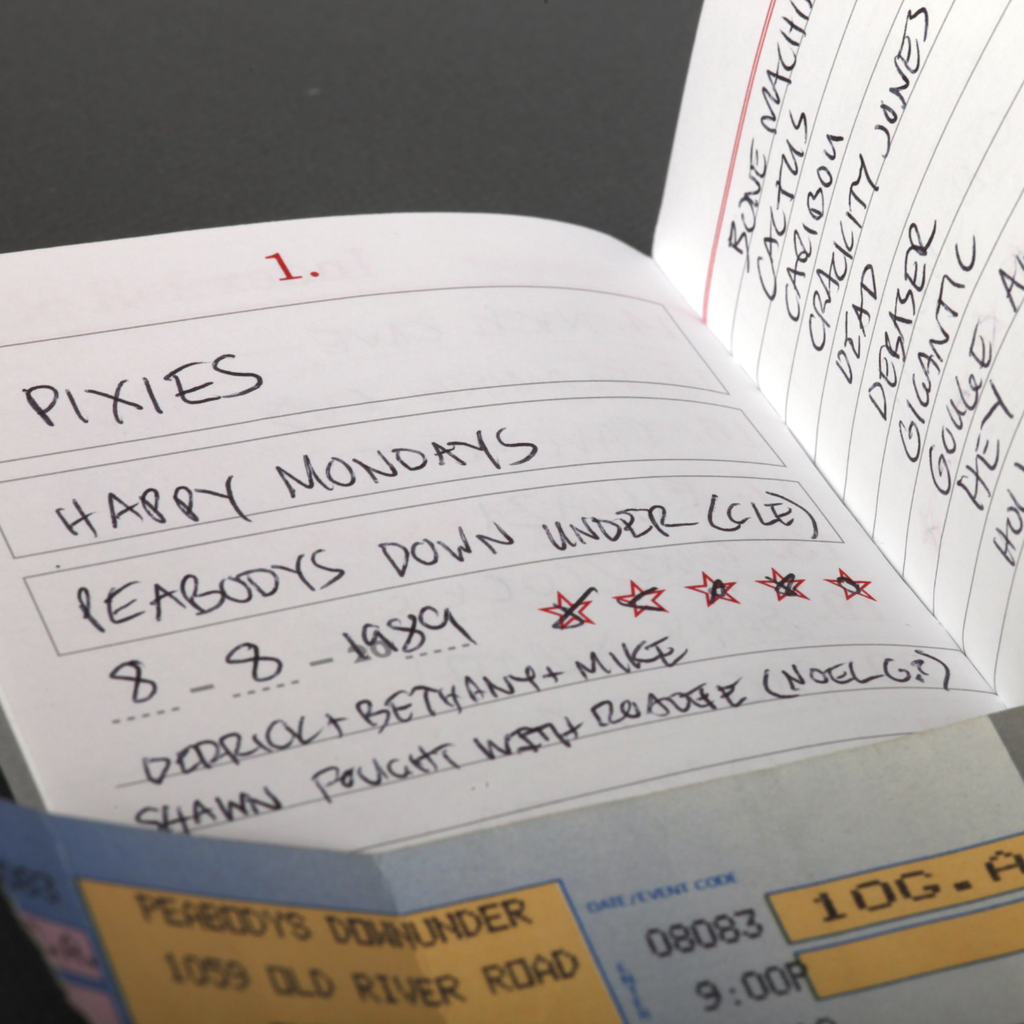 1.
PIXIES
HAPPY MONDAYS
PEABODYS DOWN UNDER (CLE)
8 - 8 - 1989
DERRICK + BETHANY + MIKE
SHAWN FOUGHT WITH ROADIE (NOEL G?)
BONE MACHI
CACTUS
CARIBOU
CRACKITY JONES
DEAD
DEBASER
GIGANTIC
GOUGE A
HEY
HOL
PEABODYS DOWNUNDER
1059 OLD RIVER ROAD
DATE/EVENT CODE
08083
9:00P
10G.A